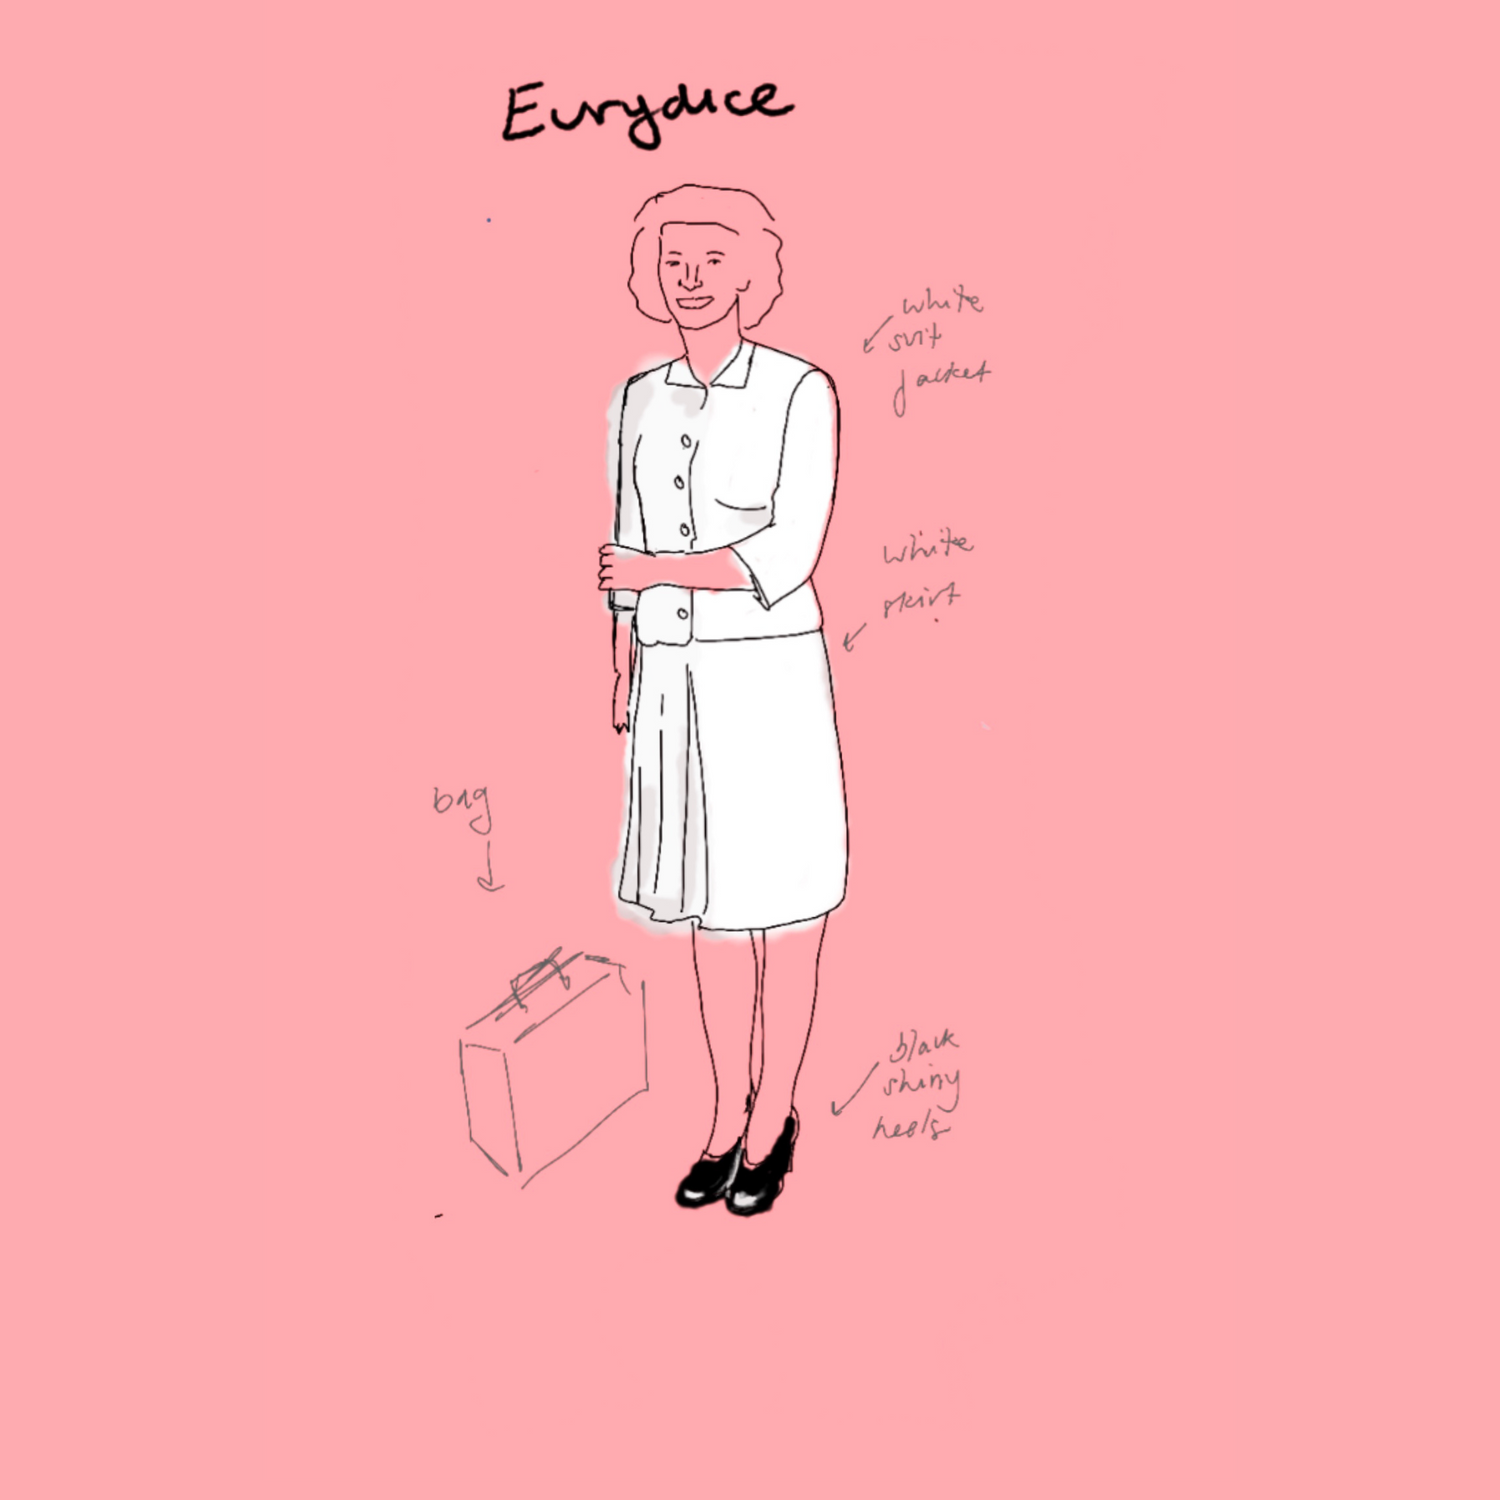 Eurydice
white
suit
jacket
white
skirt
bag
black
shiny
heels